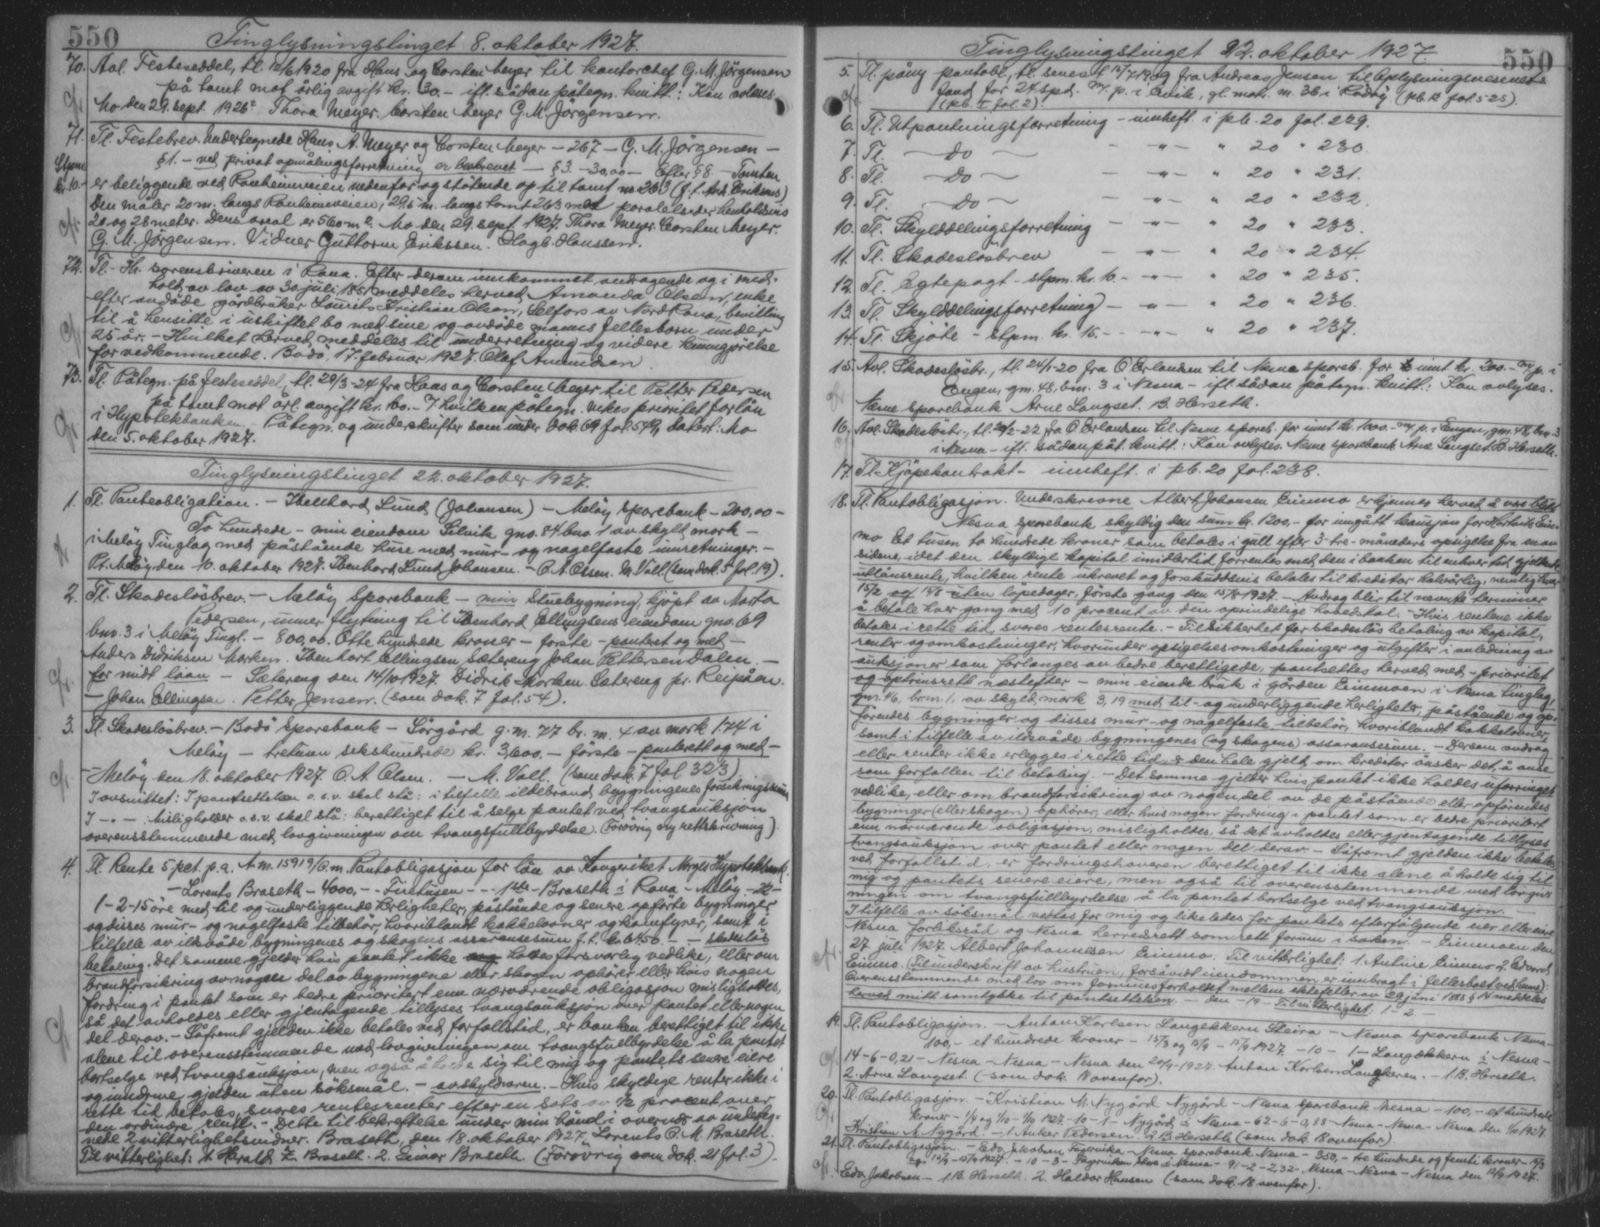 550
Tinglysningstinget 8. oktober 1927.
70. Avl. Festeseddel, tl. 12/6 1920 fra Hans og Carsten Meyer til kontorchef G. M. Jörgensen
på tomt mot årlig avgift kr. 30.- ifl. sådan påtegn. kvitt.: Kan avlyses.
Mo den 29. sept. 1926. Thora Meyer. Carsten Meyer G. M. Jörgensen.
71. Tl. Festebrev. Undertegnede Hans A. Meyer og Carsten Meyer - 267 - G. M. Jörgensen -
§ 1. - ved privat opmålingsforretning er - § 3. - 30,00 - Efter § 8 - Tomten
er beliggende ved Ranheimveien nedenfor og stötende op til tomt no 263
Den måler 20 m. langs Ranheimveien, 29,5 m. langs tomt 263 med
20 og 28 meter. Dens areal er 560 m². Mo den 29. sept. 1927. Thora Meyer. Carsten Meyer.
G. M. Jörgensen. Vidner Guttorm Erikssen. Hagb. Hanssen.
72. Tl. Hr. sorenskriveren i Rana. Efter derom innkommet andragende og i med-
hold av lov av 30 juli 1851 meddeles herved Amanda Olsen, enke
efter avdöde gårdbruker Laurits Kristian Olsen, Selfors av Nord Rana, bevilling
til å hensitte i uskiftet bo med sine og avdöde manns fellesbarn under
25 år. - Hvilket herved meddeles til underretning og videre kunngjörelse
for vedkommende. Bodö, 17. februar 1927. Olaf Amundsen.
73. Tl. Påtegn. på festeseddel, tl. 29/3-24 fra Hans og Carsten Meyer til Petter Pedersen
på tomt mot årl. avgift kr. 60.- ? hvilken påtegn. vikes prioritet for lån
i Hypotekbanken. Påtegn. og underskrifter som under dok. 69 fol. 549, datert: Mo
den 5. oktober 1927.
Tinglysningstinget 22. oktober 1927.
1. Tl. Panteobligation. - Ibenhard Lund (Johansen) - Melöy Sparebank - 200,00 -
To hundrede - min eiendom Selvik gno. 84 bno 1 av skyld mark -
i Melöy Tinglag med påstående huse med mur- og nagelfaste innretninger. -
Pt. Melöy den 10. oktober 1927. Ibenhard Lund Johansen. - O. A. Olsen. M. Vall (som dok. 5 fol. 19).
2. Tl. Skadeslösbrev. - Melöy Sparebank - min Stuebygning, kjöpt av Marta
Pedersen, under flytning til Ibenhard Ellingsens eiendom gno. 69
bno. 3 i Melöy Tingl. - 800,00. Otte hundrede kroner - förste - panteret og med -
Anders Didriksen Marken. Ibenhart Ellingsen Sætereng Johan Pettersen Dalen. -
for midt laan - Sætereng den 14/10 1927. Didrik Marken Sætereng pr.
- Johan Ellingsen. Petter Jensen. (som dok. 7 fol. 54).
3. Tl. Skadeslösbrev. - Bodö Sparebank - Sörgård g.m. 77 br. m. 4 av mark 1.74 i
Melöy - tretusen sekshundrede kr. 3600,- förste - panterett og med -
- Melöy den 18. oktober 1927. O. A. Olsen. - M. Vall. (som dok. 7 fol. 323)
I avsnittet: I pantsettelsen o.s.v. skal stå: i tilfelle ildebrand bygningenes forsikringssum
I -"- misligholder o.s.v. skal stå: berettiget til å selge pantet ved tvangsauksjon
overensstemmende med lovgivningen om tvangsfullbyrdelse. (Forövrig ny rettskrivning).
4. Tl. Rente 5 pct. p.a. A.m. 15919/6 m. Pantobligasjon for lån av Kongeriket Norges Hypotekbank.
- Lorents Braseth - 4000,- - Firetusen - - 1ste - Braseth i Rana - Melöy -
1-2-15 öre med til og underliggende herligheter, påstående og senere opförte bygninger
og disses mur- og nagelfaste tilbehör, hvoriblandt kakkelovner og komfyrer, samt i
tilfelle av ildsvåde bygningenes og skogens assuransesum f. t. kr. 6450 - - skadeslös
betaling. Det samme gjelder hvis pantet ikke holdes forsvarlig vedlike, eller om
brandforsikring av nogen del av bygningene eller skogen ophörer, eller hvis nogen
fordring i pantet som er bedre prioritert enn nærværende obligasjon misligholdes,
så det avholdes eller gjentagende tillyses tvangsauksjon over pantet eller nogen
del derav. - Såfremt gjelden ikke betales ved forfallstid, er banken berettiget til ikke
alene til overensstemmende med lovgivningen om tvangsfullbyrdelse å la pantet
bortselge ved tvangsauksjon, men også å holde sig til mig og pantets senere eiere
og inndrive gjelden uten söksmål. - avskyldneren. - Hvis skyldige renter ikke i
rette tid betales, svares rentesrenter efter en sats av 1/2 procent over
den ordinære rente. - Dette til bekreftelse under min hånd i overvær av underteg-
nede 2 vitterlighetsvidner. Braseth, den 18. oktober 1927. Lorents O. M. Braseth.
Til vitterlighet: 1. Harald Z. Braseth. 2. Einar Braseth. (Forövrig som dok. 21 fol. 3).
Tinglysningstinget 22. oktober 1927.
550
5. Tl. påny pantobl., tl. senest fra Andreas Jensen til Oplysningsvesenets
fond for 24 spd. m/ p. i Hvile, gl. mat. n. 36 i Rödöy (pb. 12 fol. 525).
(pb. I fol. 2).
6. Tl. Utpantningsforretning - innheft i pb. 20 fol. 229.
7. Tl. - Do - - " - " 20 " 230.
8. Tl. - Do - - " - " 20 " 231.
9. Tl. - Do - - " - " 20 " 232.
10. Tl. Skylddelingsforretning - " - " 20 " 233.
11. Tl. Skadeslösbrev - " - " 20 " 234.
12. Tl. Egtepagt - stpm. kr. 10.- - " - " 20 " 235.
13. Tl. Skylddelingsforretning - " - " 20 " 236.
14. Tl. Skjöte - stpm. kr. 15.- - " - " 20 " 237.
15. Avl. Skadeslösbr., tl. 24/1-20 fra O Erlandsen til Nesna spareb. for inntil kr. 300.- m/ p. i
Engen, gm. 48, brn. 3 i Nesna - ifl. sådan påtegn. kvitt.: Kan avlyses.
Nesna sparebank Arne Langset. B. Herseth.
16. Avl. Skadeslösbr., tl. 20/2-22 fra O Erlandsen til Nesna spareb. for inntil kr. 1000.- m/ p. i Engen, gm. 48, brn. 3
i Nesna - ifl. sådan påt. kvitt.: Kan avlyses. Nesna sparebank Arne Langset. B. Herseth.
17. Tl. Kjöpekontrakt - innheft i pb. 20 fol. 238.
18. Tl. Pantobligasjon. Underskrevne Albert Johansen Einmo erkjenner herved å være blitt
Nesna sparebank skyldig den sum kr. 1200,- for
mo Et tusen to hundrede kroner som betales i gull efter 3-tre- måneders opsigelse fra en av
sidene, idet den skyldige kapital imidlertid forrentes med den i banken til enhver tid gjeldende
utlånsrente, hvilken rente ukrevet og forskuddsvis betales til kreditor halvårlig, nemlig hver
15/2 og 15/8 uten löpedager, förste gang den 15/8 1927. - Avdrag blir til nevnte terminer
å betale hver gang med 10 procent av den oprindelige hovedstol. - Hvis rentene ikke
betales i rette tid, svares rentesrente. - Til sikkerhet for skadeslös betaling av kapital,
renter og omkostninger, hvorunder opsigelsesomkostninger og utgifter i anledning av
auksjoner som forlanges av bedre berettigede, pantsettes herved med - prioritet
og optrinsrett næstefter - min eiende bruk i gården Einmoen i Nesna tinglag,
gm. 46, brn. 1. av skyld mark 3,19 med til- og underliggende herligheter, påstående og op-
förendes bygninger og disses mur- og nagelfaste tilbehör, hvoriblandt kakkelovner,
samt i tilfelle av ildsvåde bygningenes (og skogens) assuransesum. - Dersom avdrag
eller renter ikke erlegges i rette tid, er den hele gjeld, om kreditor önsker det, å anse
som forfallen til betaling. - Det samme gjelder hvis pantet ikke holdes uforringet
vedlike, eller om brandforsikring av nogen del av de påstående eller opförendes
bygninger (eller skogen) ophörer, eller hvis nogen fordring i pantet som er bedre prioritert
enn nærværende obligasjon, misligholdes, så det avholdes eller gjentagende tillyses
tvangsauksjon over pantet eller nogen del derav. - Såfremt gjelden ikke betales
ved forfallstid, er fordringshaveren berettiget til ikke alene å holde sig til
mig og pantets senere eiere, men også til overensstemmende med lovgiv-
ningen om tvangsfullbyrdelse å la pantet bortselge ved tvangsauksjon. -
I tilfelle av söksmål vedtas for mig og likeledes for pantets efterfölgende eier eller eiere
Nesna forliksråd og Nesna herredsrett som rett forum i saken. - Einmoen den
27 juli 1927. Albert Johannesen Einmo. Til vitterlighet: 1. Antine Einmo 2. Edvard
Einmo. (Til underskrift av hustruen, forsåvidt eiendommen er innbragt i fellesboet ved henne):
Overensstemmende med lov om formuesforholdet mellem ektefeller av 29 juni 1888 § 14 meddeles
herved mitt samtykke til pantsettelsen. - den - 19 - Til vitterlighet: 1 - 2 -
19. Tl. Pantobligasjon. - Anton Karlsen Langekkern Sleira - Nesna sparebank Nesna -
100,- et hundrede kroner - 15/3 og 15/9 - 15/9 1927. - 10 - 1 - Langekkern i Nesna -
14-6-0,21 - Nesna - Nesna - Nesna den 20/9-1927. Anton Karlsen Langekeren. - 1. B. Herseth.
2. Arne Langset. (-som dok. 18 ovenfor).
20. Tl. Pantobligasjon. - Kristian M. Nygård Nygård - Nesna sparebank Nesna - 100,- et hundrede
kroner - 1/4 og 1/10 - 1/10 1927. - 10 - 1 - Nygård i Nesna - 62-6-0,88 - Nesna - Nesna - Nesna den 1/10 1927.
Kristian M. Nygård. - 1. Anker Pedersen. 2. B. Herseth. (som dok. 18 ovenfor)
21. Tl. Pantobligasjon. - Edv. Jakobsen - Nesna sparebank Nesna - 350,- tre hundrede og femti kroner -
- 10 - 3 - i Nesna - 91-2-2,32 - Nesna - Nesna - Nesna den 1927.
Edv. Jakobsen - 1. B. Herseth. 2. Haldor Hansen (som dok. 18 ovenfor).